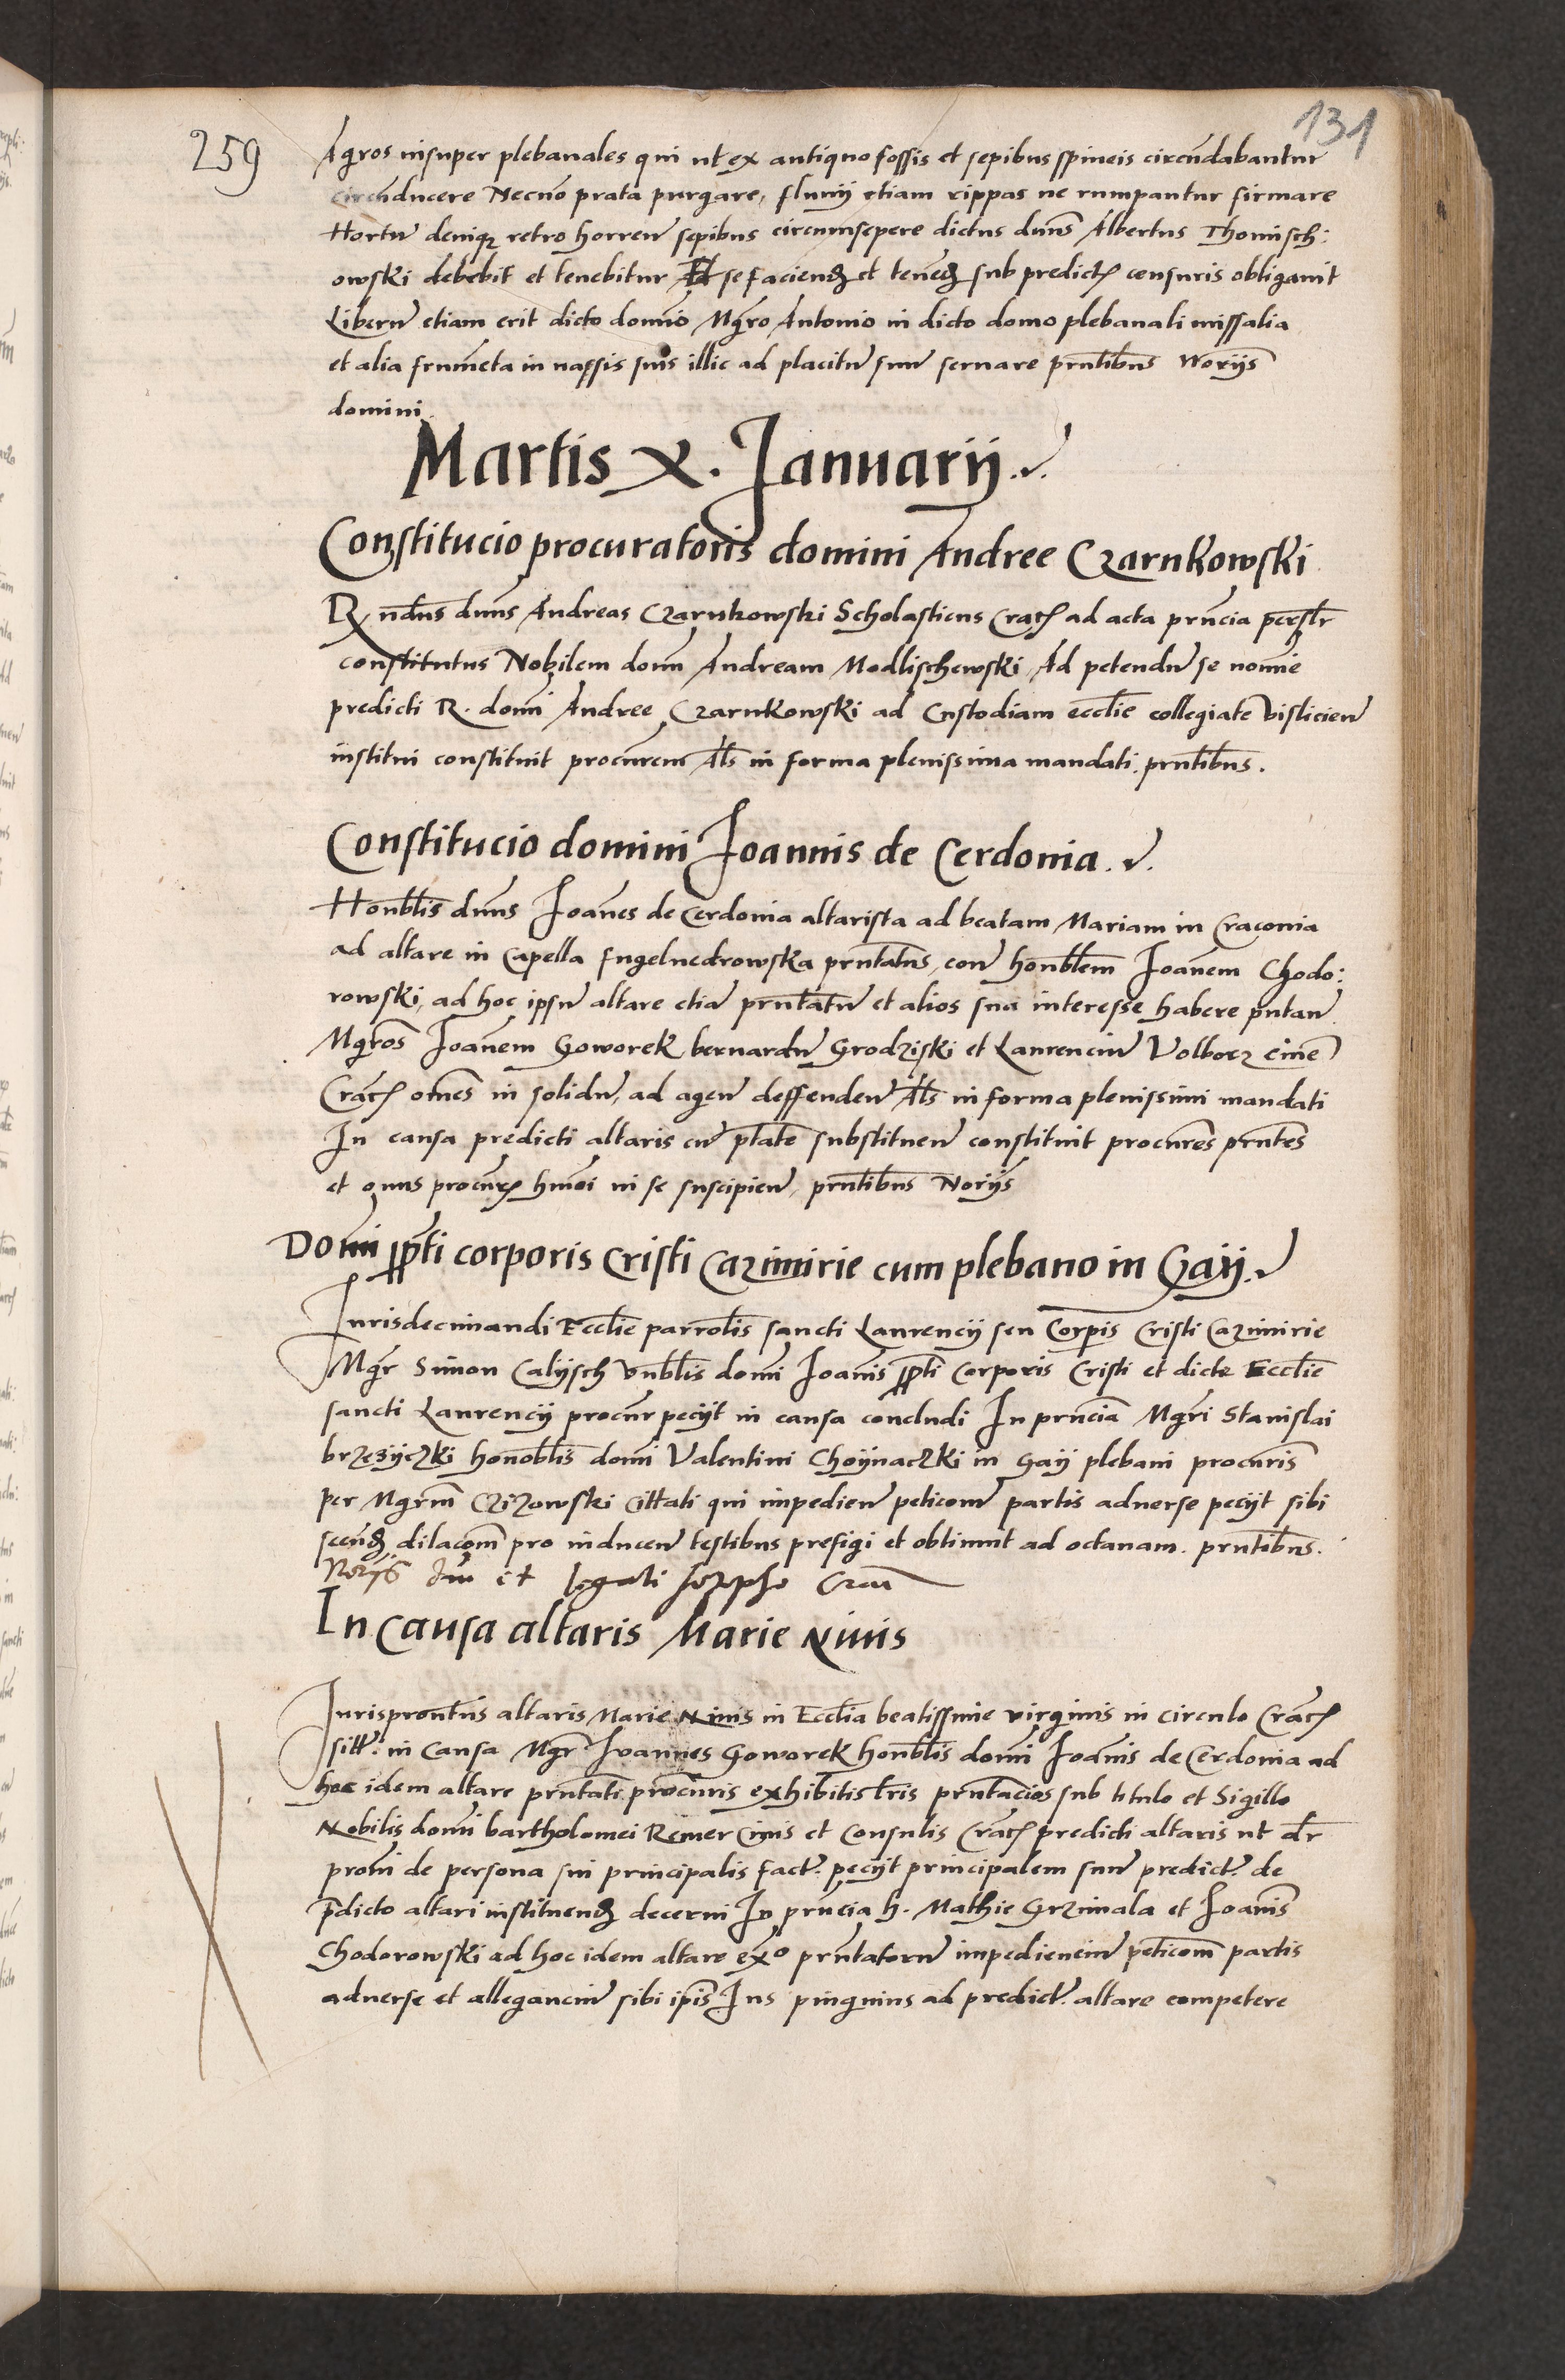 131
259
Agros insuper plebanales qui ut ex antiquo fossis et sepibus spineis circũdabantur
circũducere Necnõ prata purgare, fluvij etiam rippas ne rumpantur firmare
Hortũ deniqʒ retro horreũ sepibus circumsepere dictus dñns Albertus Thomisch:
owski debebit et tenebitur Et se faciendʒ et tenẽdʒ sub predictꝭ censuris obligavit
Liberũ etiam erit dicto domiño Mgr̃o Antonio in dicto domo plebanali missalia
et alia frumẽta in vassis suis illic ad placitũ suũ servare pñtibus
domini
Martis X. Januarij
Constitucio procuratoris domini Andree Czarnkowski
Rñdus dñns Andreas Czarnkowski Scholasticus Cracꝭ ad acta prñcia persl̃r
constitutus Nobilem domñ Andream Modlischewski Ad petendũ se nomĩe
predicti R. domĩ Andree Czarnkowski ad Custodiam eccl̃ie collegiate Visliciẽn
institui constituit procũrem Al̃s in forma plenissima mandati. prñtibus.
Constitucio domini Joannis de Cerdonia
Honbl̃is dñns Joañes de Cerdonia altarista ad beatam Mariam in Cracovia
ad altare in Capella Engelnedrowska prñtatus, con honbl̃em Joañem Chodo:
rowski, ad hoc ipsũ altare etiã prñtatũ et alios sua interesse habere putañ
Mgr̃os Joañem Goworek bernardũ Grodziski et Laurenciũ Volborz cive
Cracꝭ om̃es in solidũ, ad agen̄ deffenden̄ Al̃s in forma plenissimi mandati
In causa predicti altaris cũ ptat̃e substituen̄ constituit procũres prñtes
et onus procũrꝭ hm̃oi in se suscipien̄, prñtibus Norijs
Domĩ pp̃ti corporis Cristi Cazimirie cum plebano in Gaij
Jurisdecimandi Eccl̃ie parrol̃is sancti Laurencij seu Corp̃is Cristi Cazimirie
Mgr̃ Simon Calijsch Vnbl̃is domĩ Joañis pp̃ti Corporis Cristi et dicte Eccl̃ie
sancti Laurencij procũr pecijt in causa concludi In prñcia Mgr̃i Stanislai
brzezijczki honobl̃is domĩ Valentini Choijnaczki in Gaij plebani procũris
per Mgr̃m Czizowski cittati qui impedien̄ peticom̃ partis adverse pecijt sibi
scd̃ʒ dilacom̃ pro inducen̄ testibus prefigi et obtinuit ad octavam. prñtibus.
Norijs et
In Causa altaris Marie Nivis
Jurisprontũs altaris Marie Nivis in Eccl̃ia beatissime virginis in circulo Cracꝭ
sitt: in Causa Mgr̃ Joannes Goworek honbl̃is domĩ Joañis de Cerdonia ad
hoc idem altare prñtati procũris exhibitis l̃ris prñtacios sub titulo et Sigillo
Nobilis domĩ bartholomei Remer Civis et Consulis Cracꝭ predicti altaris ut dr̃
pron̄i de persona sui principalis fact. pecijt principalem suũ predict. de
p̃dicto altari instituendʒ decerni In prñcia h. Mathie Grzimala et Joañis
Chodorowski ad hoc idem altare exº prñtatorũ impedienciũ peticom̃ partis
adverse et alleganciũ sibi ip̃is Jus pinguius ad predict. altare competere